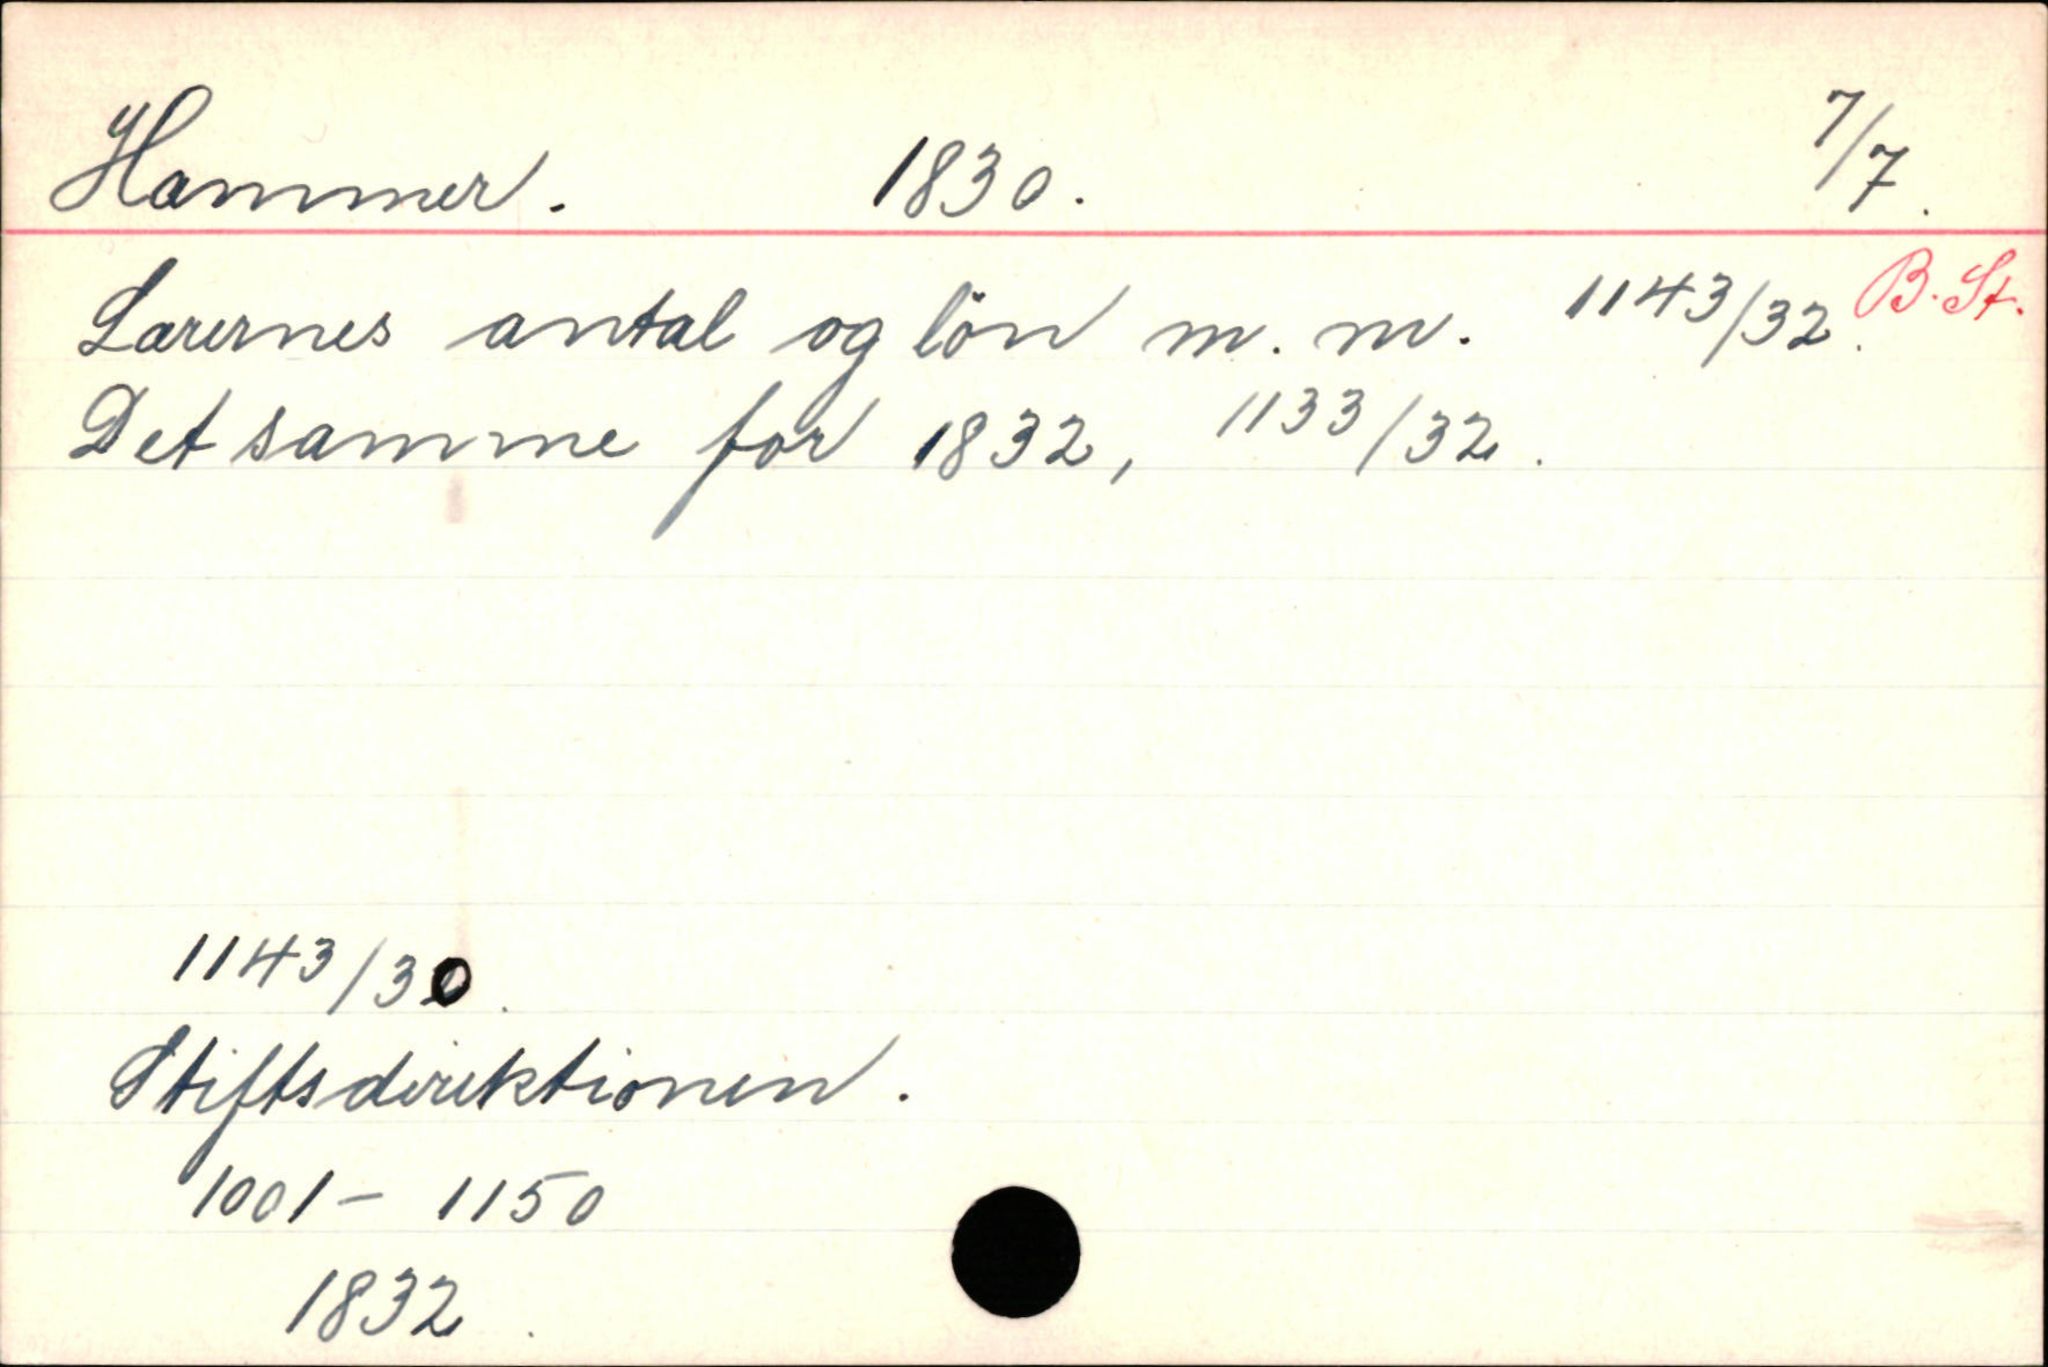 Hammer. 1830. 7/7.
Lærernes antal og lön m. m. 1143/32. B. St.
Det samme for 1832, 1133/32.
1143/30.
Stiftsdirektionen.
1001 - 1150
1832.